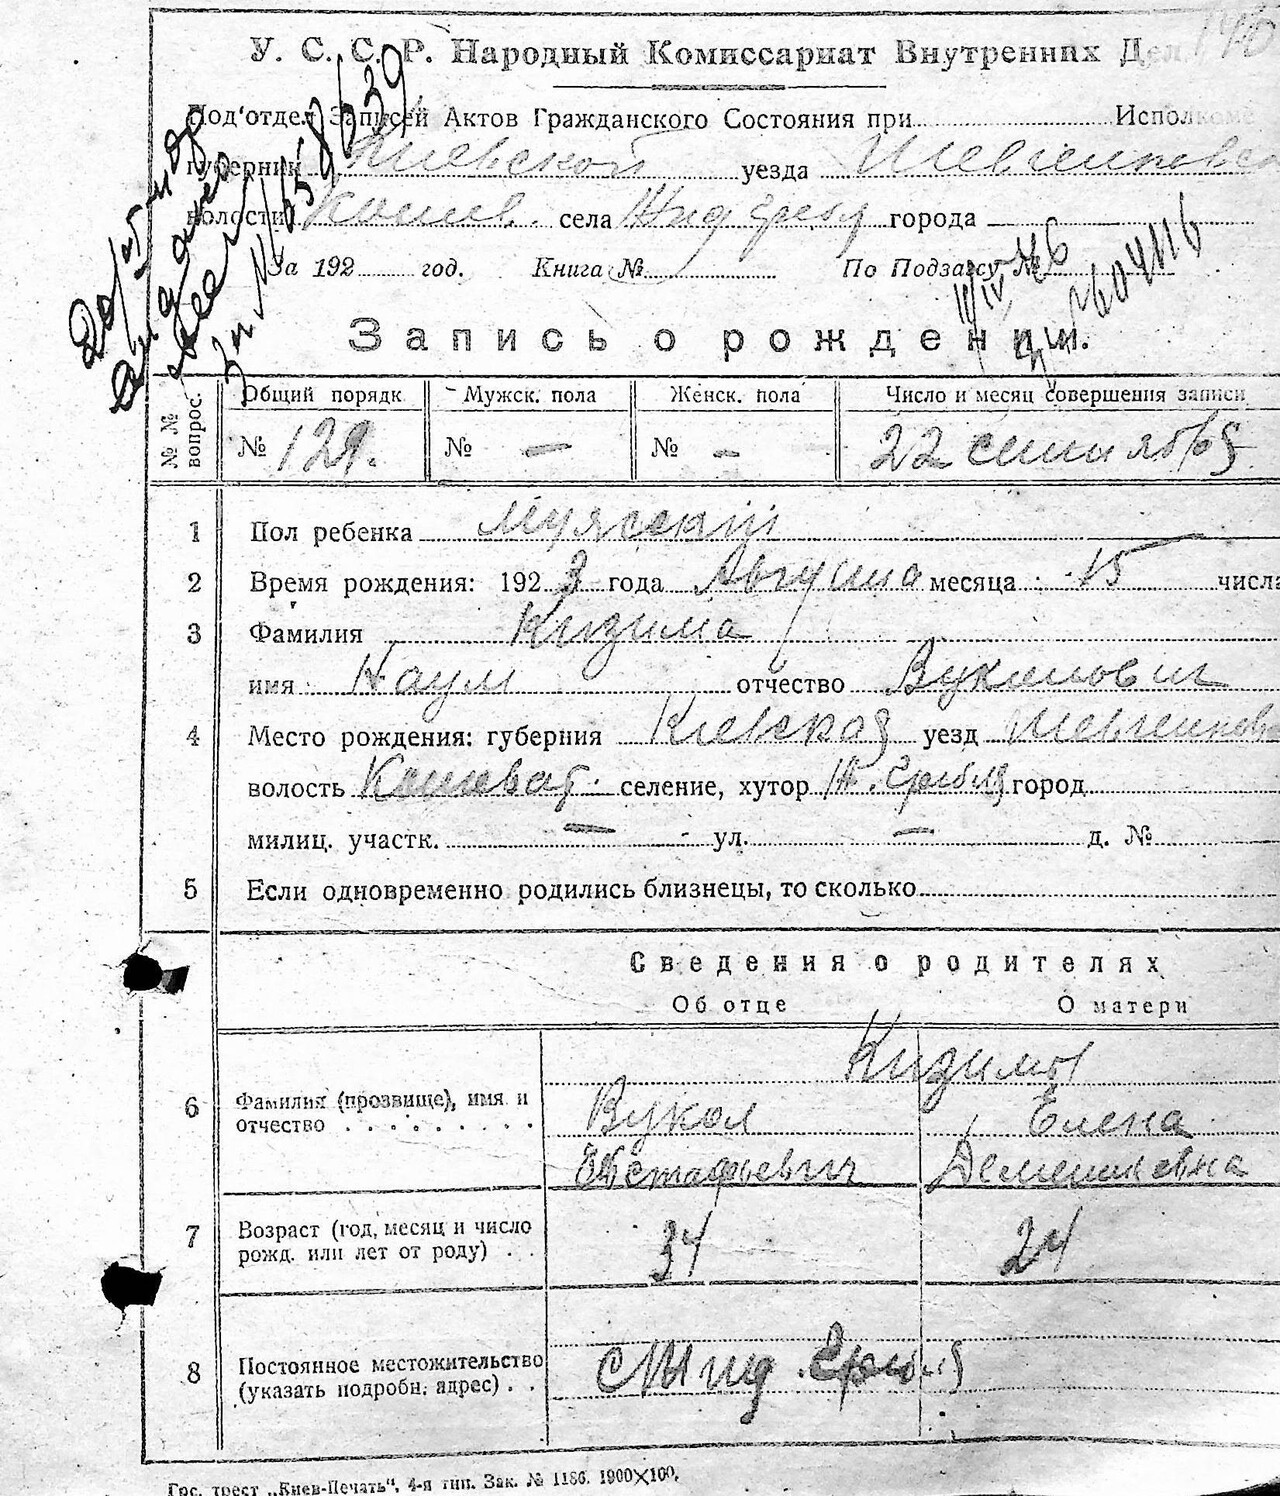 У. С. С. Р. Народный Комиссариат Внутренних Дел.
Под'отдел Записей Актов Гражданского Состояния при Исполкоме
губернии Киевской уезда Шевченковско
волости Кошев. села Жид Греблу города
За 192 год. Книга № По Подзагсу №
Запись о рождении.
№ № вопрос. Общий порядк. Мужск. пола Женск. пола Число и месяц совершения записи
№ 129. № — № — 22 сентября
1 Пол ребенка Мужской
2 Время рождения: 1923 года Августа месяца: 15 числа
3 Фамилия Кизима
имя Наум отчество Вуколович
4 Место рождения: губерния Киевская уезд Шевченковс
волость Кошеват. селение, хутор Ж. Гребля город
милиц. участк. — ул. — д. №
5 Если одновременно родились близнецы, то сколько
Сведения о родителях
Об отце О матери
Кизимы
6 Фамилия (прозвище), имя и отчество Вукол Елена
Евстафьевич Дементьевна
7 Возраст (год, месяц и число рожд. или лет от роду) 34 24
8 Постоянное местожительство (указать подробн. адрес) с Жид. Гребля
Грс. трест „Киев-Печать“, 4-я тип. Зак. № 1186. 1900×100.